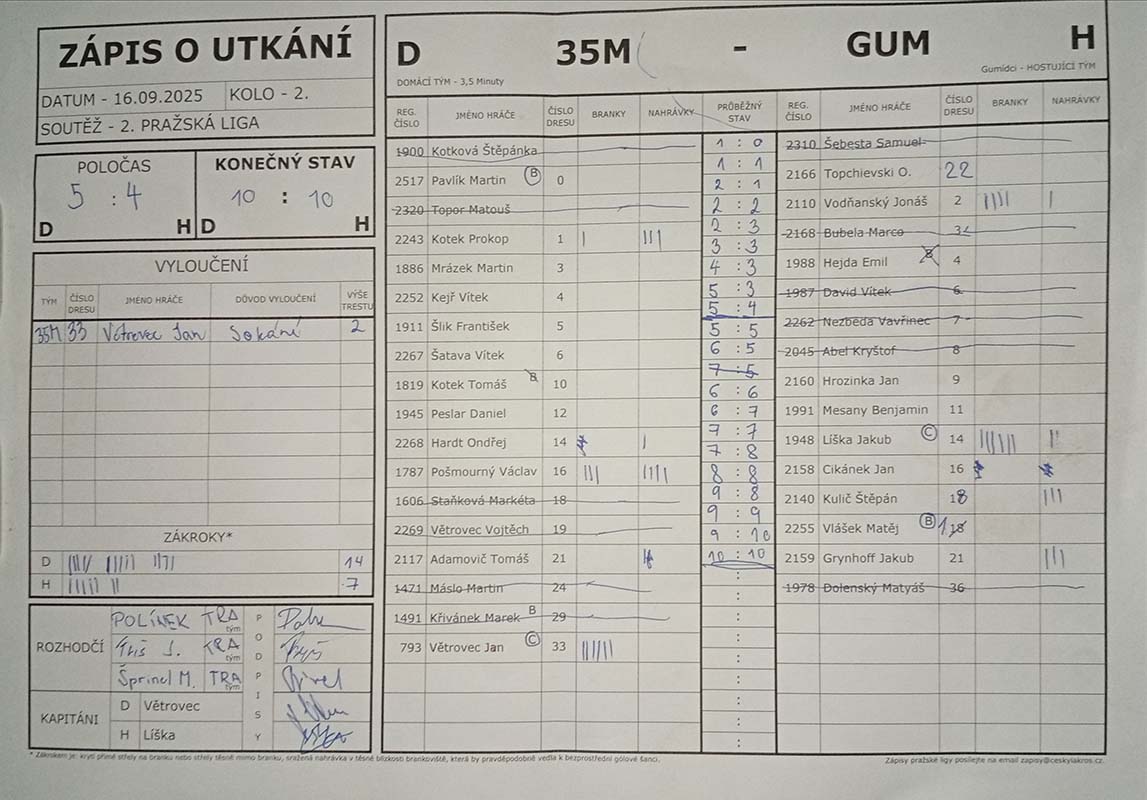 ZÁPIS O UTKÁNÍ
DATUM - 16.09.2025 KOLO - 2.
SOUTĚŽ - 2. PRAŽSKÁ LIGA
POLOČAS KONEČNÝ STAV
5 : 4 10 : 10
D H D H
VYLOUČENÍ
TÝM ČÍSLO DRESU JMÉNO HRÁČE DŮVOD VYLOUČENÍ VÝŠE TRESTU
35M 33 Větrovec Jan Sekání 2
ZÁKROKY*
D 14
H 7
ROZHODČÍ
POLÍNEK TRA tým
TRA tým
Šprincl M. TRA tým
PODPISY
KAPITÁNI
D Větrovec
H Líška
D 35M - GUM H
DOMÁCÍ TÝM - 3,5 Minuty Gumídci - HOSTUJÍCÍ TÝM
REG. ČÍSLO JMÉNO HRÁČE ČÍSLO DRESU BRANKY NAHRÁVKY PRŮBĚŽNÝ STAV REG. ČÍSLO JMÉNO HRÁČE ČÍSLO DRESU BRANKY NAHRÁVKY
1900 Kotková Štěpánka
2517 Pavlík Martin B 0
2320 Topor Matouš
2243 Kotek Prokop 1 | |||
1886 Mrázek Martin 3
2252 Kejř Vítek 4
1911 Šlik František 5
2267 Šatava Vítek 6
1819 Kotek Tomáš B 10
1945 Peslar Daniel 12
2268 Hardt Ondřej 14 |
1787 Pošmourný Václav 16 ||| ||||
1606 Staňková Markéta 18
2269 Větrovec Vojtěch 19
2117 Adamovič Tomáš 21
1471 Máslo Martin 24
1491 Křivánek Marek B 29
793 Větrovec Jan C 33 ||||||
1 : 0
1 : 1
2 : 1
2 : 2
2 : 3
3 : 3
4 : 3
5 : 3
5 : 4
5 : 5
6 : 5
7 : 5
6 : 6
6 : 7
7 : 7
7 : 8
8 : 8
9 : 8
9 : 9
9 : 10
10 : 10
:
:
:
:
:
:
:
2310 Šebesta Samuel
2166 Topchievski O. 22
2110 Vodňanský Jonáš 2 |||| |
2168 Bubela Marco 3
1988 Hejda Emil B 4
1987 David Vítek 6
2262 Nezbeda Vavřinec 7
2045 Abel Kryštof 8
2160 Hrozinka Jan 9
1991 Mesany Benjamin 11
1948 Líška Jakub C 14 |||||| ||
2158 Cikánek Jan 16
2140 Kulič Štěpán 18 |||
2255 Vlášek Matěj B 1
2159 Grynhoff Jakub 21 |||
1978 Dolenský Matyáš 36
* Zákrokem je: krytí přímé střely na branku nebo střely těsně mimo branku, sražená nahrávka v těsné blízkosti brankoviště, která by pravděpodobně vedla k bezprostřední gólové šanci.
Zápisy pražské ligy posílejte na email zapisy@ceskylakros.cz.